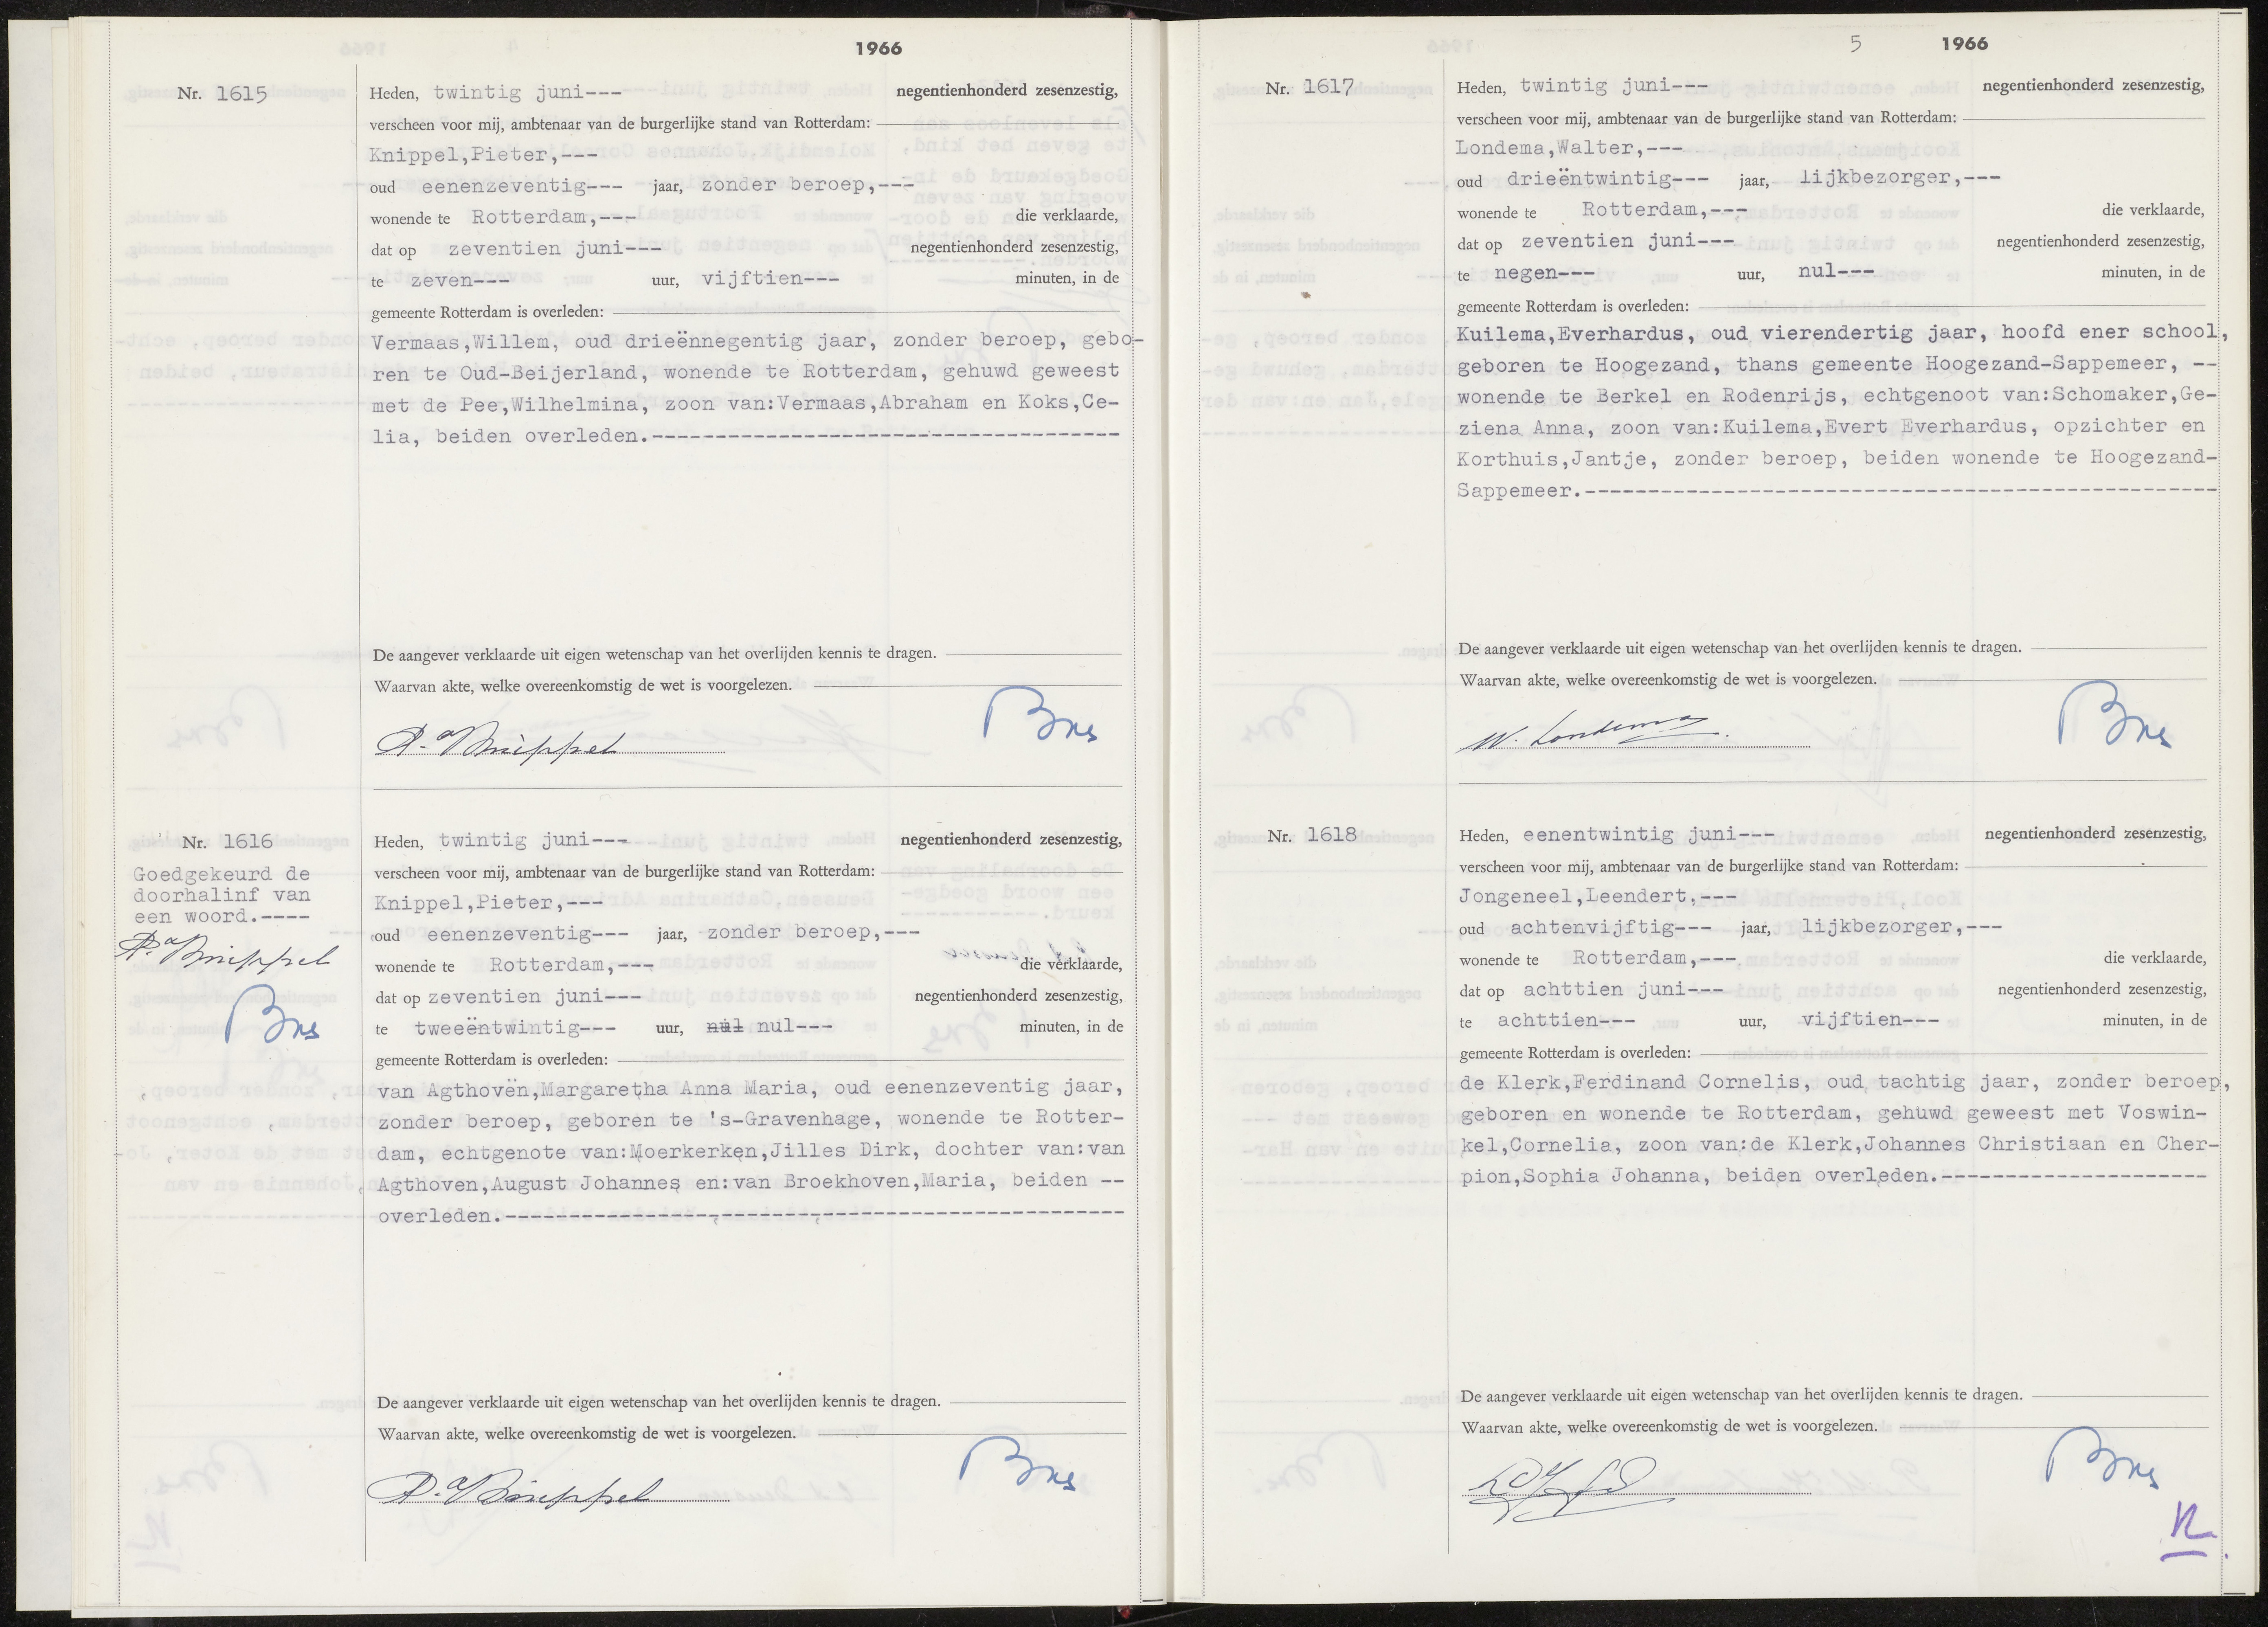 1966
Nr. 1615
Heden, twintig juni--- negentienhonderd zesenzestig,
verscheen voor mij, ambtenaar van de burgerlijke stand van Rotterdam:
Knippel,Pieter,---
oud eenenzeventig--- jaar, zonder beroep,---
wonende te Rotterdam,--- die verklaarde,
dat op zeventien juni--- negentienhonderd zesenzestig,
te zeven--- uur, vijftien--- minuten, in de
gemeente Rotterdam is overleden:
Vermaas,Willem, oud drieënnegentig jaar, zonder beroep, gebo-
ren te Oud-Beijerland, wonende te Rotterdam, gehuwd geweest
met de Pee,Wilhelmina, zoon van:Vermaas,Abraham en Koks,Ce-
lia, beiden overleden.-------------------------------------
De aangever verklaarde uit eigen wetenschap van het overlijden kennis te dragen.
Waarvan akte, welke overeenkomstig de wet is voorgelezen.
Knippel
Nr. 1616
Goedgekeurd de
doorhalinf van
een woord.----
Knippel
Heden, twintig juni--- negentienhonderd zesenzestig,
verscheen voor mij, ambtenaar van de burgerlijke stand van Rotterdam:
Knippel,Pieter,---
oud eenenzeventig--- jaar, zonder beroep,---
wonende te Rotterdam,--- die verklaarde,
dat op zeventien juni--- negentienhonderd zesenzestig,
te tweeëntwintig--- uur, nul nul--- minuten, in de
gemeente Rotterdam is overleden:
van Agthovën,Margaretha Anna Maria, oud eenenzeventig jaar,
zonder beroep, geboren te 's-Gravenhage, wonende te Rotter-
dam, echtgenote van:Moerkerken,Jilles Dirk, dochter van:van
Agthoven,August Johannes en:van Broekhoven,Maria, beiden --
overleden.-------------------------------------------------
De aangever verklaarde uit eigen wetenschap van het overlijden kennis te dragen.
Waarvan akte, welke overeenkomstig de wet is voorgelezen.
Knippel
5 1966
Nr. 1617
Heden, twintig juni--- negentienhonderd zesenzestig,
verscheen voor mij, ambtenaar van de burgerlijke stand van Rotterdam:
Londema,Walter,---
oud drieëntwintig--- jaar, lijkbezorger,---
wonende te Rotterdam,--- die verklaarde,
dat op zeventien juni--- negentienhonderd zesenzestig,
te negen--- uur, nul--- minuten, in de
gemeente Rotterdam is overleden:
Kuilema,Everhardus, oud vierendertig jaar, hoofd ener school,
geboren te Hoogezand, thans gemeente Hoogezand-Sappemeer, --
wonende te Berkel en Rodenrijs, echtgenoot van:Schomaker,Ge-
ziena Anna, zoon van:Kuilema,Evert Everhardus, opzichter en
Korthuis,Jantje, zonder beroep, beiden wonende te Hoogezand-
Sappemeer.--------------------------------------------------
De aangever verklaarde uit eigen wetenschap van het overlijden kennis te dragen.
Waarvan akte, welke overeenkomstig de wet is voorgelezen.
W. Londema
Nr. 1618
Heden, eenentwintig juni--- negentienhonderd zesenzestig,
verscheen voor mij, ambtenaar van de burgerlijke stand van Rotterdam:
Jongeneel,Leendert,---
oud achtenvijftig--- jaar, lijkbezorger,---
wonende te Rotterdam,--- die verklaarde,
dat op achttien juni--- negentienhonderd zesenzestig,
te achttien--- uur, vijftien--- minuten, in de
gemeente Rotterdam is overleden:
de Klerk,Ferdinand Cornelis, oud tachtig jaar, zonder beroep,
geboren en wonende te Rotterdam, gehuwd geweest met Voswin-
kel,Cornelia, zoon van:de Klerk,Johannes Christiaan en Cher-
pion,Sophia Johanna, beiden overleden.---------------------
De aangever verklaarde uit eigen wetenschap van het overlijden kennis te dragen.
Waarvan akte, welke overeenkomstig de wet is voorgelezen.